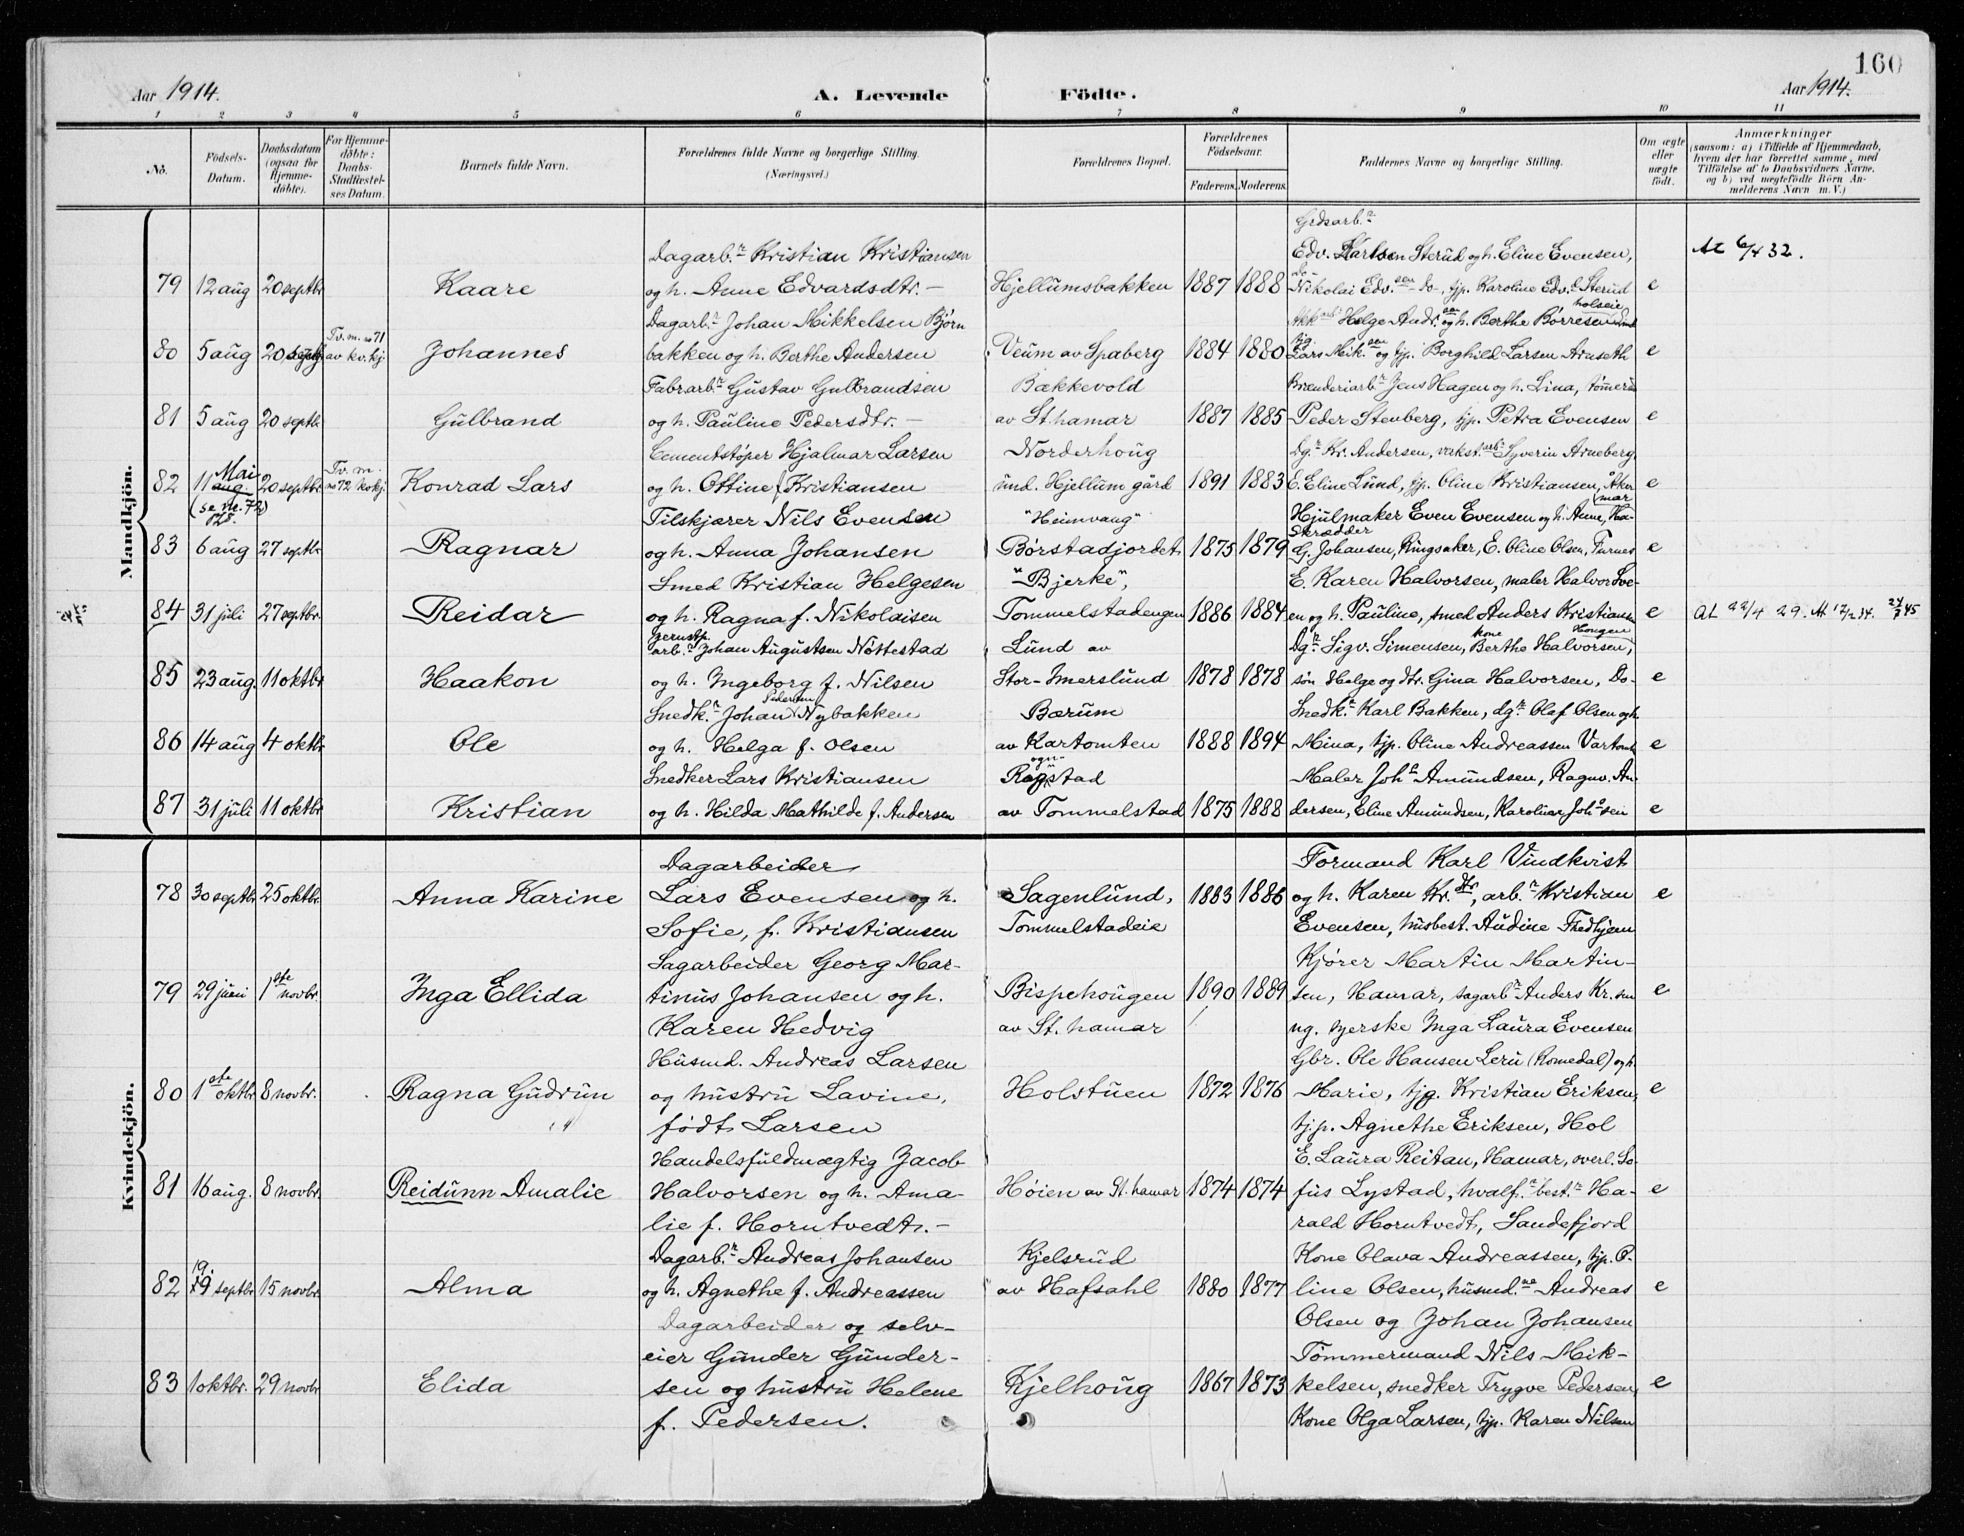 160
Aar 1914. A. Levende Fødte. Aar 1914.
1 2 3 4 5 6 7 8 9 10 11
No. Födsels-Datum. Daabsdatum (ogsaa for Hjemme-döbte). For Hjemme-döbte: Daabs-Stadfæstel-ses Datum. Barnets fulde Navn. Forældrenes fulde Navne og borgerlige Stilling. (Næringsvei.) Forældrenes Bopæl. Forældrenes Födselsaar. Faderens. Moderens. Faddernes Navne og borgerlige Stilling. Om ægte eller uægte födt. Anmærkninger (saasom: a) i Tilfælde af Hjemmedaab, hvem der har forrettet samme, med Tilföielse af to Daabsvidners Navne, og b) ved uægtefödte Börn An-melderens Navn m. V.)
Mandkjön.
Grdsarb.r
Dagarb.r Kristian Kristiansen Edv. Karlsen Sterud og h. Eline Evensen, At 6/4 32.
79 12 aug 20 septbr Kaare og h. Anne Edvardsdtr. – Hjellumsbakken 1887 1888 Nikolai Edv.sen -do-, tjp. Karoline Edv. Sterud e
Dagarb.r Johan Mikkelsen Björn Helge Andr.sen og h. Berthe Börresen
80 5 aug 20 septbr Tv. m. no 71 av kv.kj. Johannes bakken og h. Berthe Andersen Veum av Spaberg 1884 1880 Lars Mik.sen og tjp. Borghild Larsen Arnseth e
Fabrarb.r Gustav Gulbrandsen Bækkevold Brænderiarb.r Jens Hagen og h. Lina,
81 5 aug 20 septbr. Gulbrand og h. Pauline Pedersdtr. – av St. hamar 1887 1885 Peder Stenberg, tjp. Petra Evensen e
Cementstöper Hjalmar Larsen Norderhoug Dg.r Kr. Andersen, verkst.arb.r Syverin Arneberg,
82 11 aug. Mai (se no. 72) 20 septbr. Tv. m. no 72 kv.kj. Konrad Lars og h. Ottine Kristiansen und. Hjellum gård 1891 1883 E. Eline Lund, tjp. Oline Kristiansen, e
Tilskjærer Nils Evensen "Heimvang" Hjulmaker Even Evensen og h. Anne, Ha-mar
83 6 aug 27 septbr. Ragnar og h. Anna Johansen Börstadjordet 1875 1879 Skrædder G. Johansen, Ringsaker, E. Oline Olsen, Furnes e
Smed Kristian Helgesen "Bjerke", E. Karen Halvorsen, maler Halvor Sve-
84 31 juli 27 septbr. Reidar og h. Ragna f. Nikolaisen Tommelstadengen 1886 1884 en og h. Pauline, smed Anders Kristiansen e At 22/4 29. At 12/2 34. 24/7 45
Jernstp. arb.r Johan Augustsen Nöttestad Lund av Dg.r Sigv. Simensen, kone Berthe Halvorsen, Hougen
85 23 aug. 11 oktbr Haakon og h. Ingeborg f. Nilsen Stor-Imerslund 1878 1878 sön Helge og dtr. Gina Halvorsen, Do- e
Snedk.r Johan Nybakken Bærum Snedk.r Karl Bakken, dg.r Olaf Olsen og h.
86 14 aug 4 oktbr. Ole og h. Helga f. Olsen av Kartomten 1888 1894 Mina, tjp. Oline Andreassen Vartomt e
Snedker Lars Kristiansen Rognstad Maler Joh.s Amundsen, Ragnv. An-
87 31 juli 11 oktbr Kristian og h. Hilda Mathilde f. Andersen av Tommelstad 1875 1888 dersen, Eline Amundsen, Karoline Joh.sen e
Kvindekjön.
Dagarbeider Formand Karl Vindkvist
78 30 septbr 25 oktbr. Anna Karine Lars Evensen og h. Sagenlund, 1883 1886 og h. Karen Kr.dtr, arb.r Kristian e
Sofie, f. Kristiansen Tommelstadeie Evensen, husbest. Audine Fredhjem
Sagarbeider Georg Mar- Kjörer Martin Martin-
79 29 juni 1ste novbr. Inga Ellida tinus Johansen og h. Bispehougen 1890 1889 sen, Hamar, sagarb.r Anders Kr.sen e
Karen Hedvig av St. hamar ug. syerske Inga Laura Evensen
Husmd. Andreas Larsen Gbr. Ole Hansen Leru (Romedal) og h.
80 1ste oktbr. 8 novbr. Ragna Gudrun og hustru Lavine, Holstuen 1872 1876 Marie, tjg. Kristian Eriksen, e
født Larsen tjp. Agnethe Eriksen, Hol
Handelsfuldmægtig Jacob E. Laura Reitan, Hamar, overl. So-
81 16 aug. 8 novbr. Reidunn Amalie Halvorsen og h. Ama- Höien av St. hamar 1874 1874 fus Lystad, hvalf.r best.r Ha- e
lie f. Horntvedt. – rald Horntvedt, Sandefjord
Dagarb.r Andreas Johansen Kjelsrud Kone Olava Andreassen, tjp. O-
82 19. septbr. 15 novbr. Alma og h. Agnethe f. Andreassen av Hafsahl 1880 1877 line Olsen, husmd.ne Andreas e
Dagarbeider og selv- Olsen og Johan Johansen
eier Gunder Gunder- Tömmermand Nils Mik-
83 1 oktbr. 29 novbr Elida sen og hustru Helene Kjelhoug 1867 1873 kelsen, snedker Trygve Pedersen, e
f. Pedersen. Kone Olga Larsen, tjp. Karen Nilsen